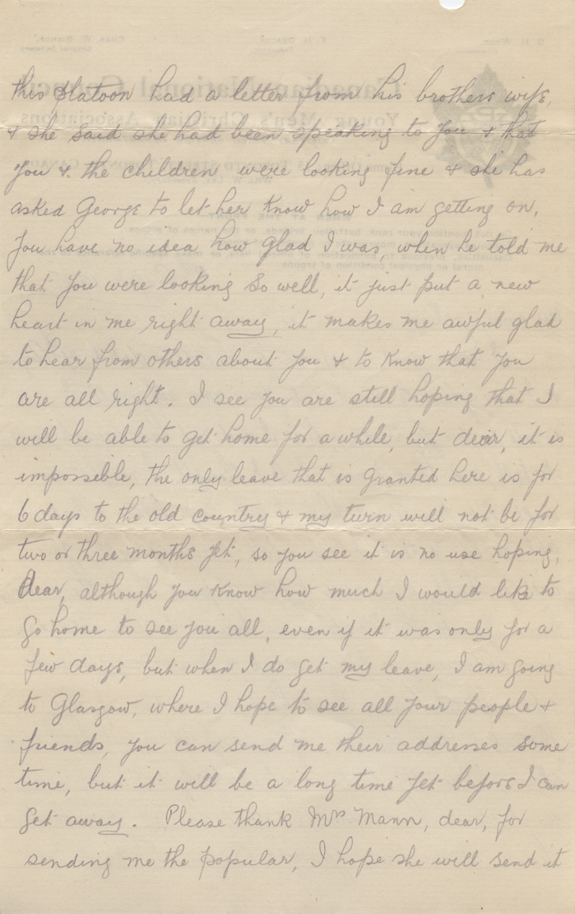 this platoon had a letter from his brothers wife,
& she said she had been speaking to you & that
you & the children were looking fine & she has
asked George to let her know how I am getting on,
you have no idea how glad I was, when he told me
that you were looking so well, it just put a new
heart in me right away, it makes me awful glad
to hear from others about you & to know that you
are all right. I see you are still hoping that I
will be able to get home for a while, but dear, it is
impossible, the only leave that is granted here is for
6 days to the old country & my turn will not be for
two or three months yet, so you see it is no use hoping,
dear, although you know how much I would like to
go home to see you all, even if it was only for a
few days, but when I do get my leave, I am going
to Glasgow, where I hope to see all your people &
friends, you can send me their addresses some
time, but it will be a long time yet before I can
get away. Please thank Mrs Mann, dear, for
sending me the popular, I hope she will send it